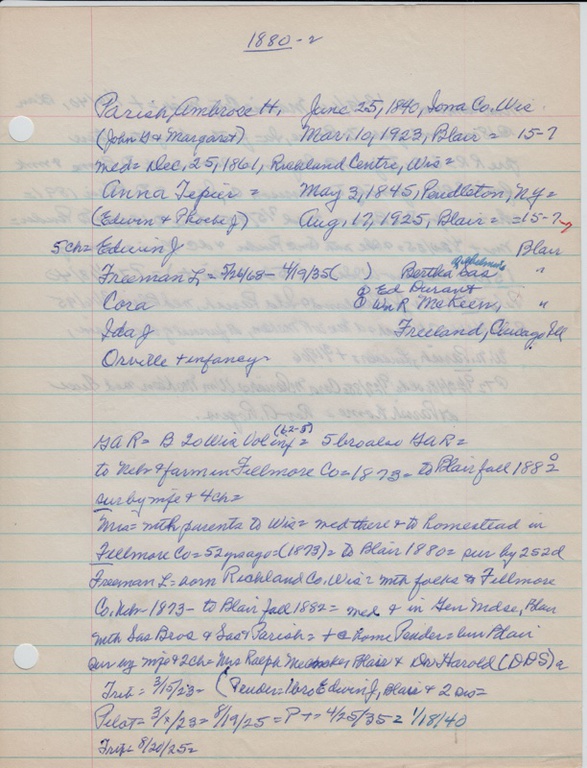 1880-2
Parish, Ambrose H, June 25, 1840, Iowa Co. Wis.
(John D & Margaret) Mar. 10, 1923, Blair = 15-7
med = Dec, 25, 1861, Richland Centre, Wis =
Anna Tepier = May 3, 1845, Pendleton, NY =
(Edwin & Phoebe J) Aug, 17, 1925, Blair = = 15-7
5 ch = Edwin J Blair
Freeman L, = 5/26/68 - 4/19/35 ( ) Bertha Sas "
① Ed Durant
Cora ② Wm R McKeen, "
Ida J Freeland, Chicago Ill
Orville + infancy =
(62-5)
GAR = B 20 Wis Vol Inf = 5 bro also GAR =
to Nebr & farm in Fillmore Co = 1873 = to Blair fall 1882
sur by wife & 4 ch =
Mrs = with parents to Wis = med there & to homestead in
Fillmore Co = 52 yrs ago = (1873) = to Blair 1880 = sur by 2s 2d
Freeman L = born Richland Co, Wis = with folks to Fillmore
Co, Nebr 1873 - to Blair fall 1882 = med & in Gen Mdse, Blair
with Sas Bros & Sas & Parish = + @ home Pender = bur Blair
sur by wife & 2 ch = Mrs Ralph Blair & Dr Harold (DDS) @
Trib = 3/15/23 = (Pender = bro Edwin J, Blair & 2 sis =
Pilot = 3/ /23 = 8/19/25 = P + = 4/25/35 = 1/18/40
Trib = 8/20/25 =